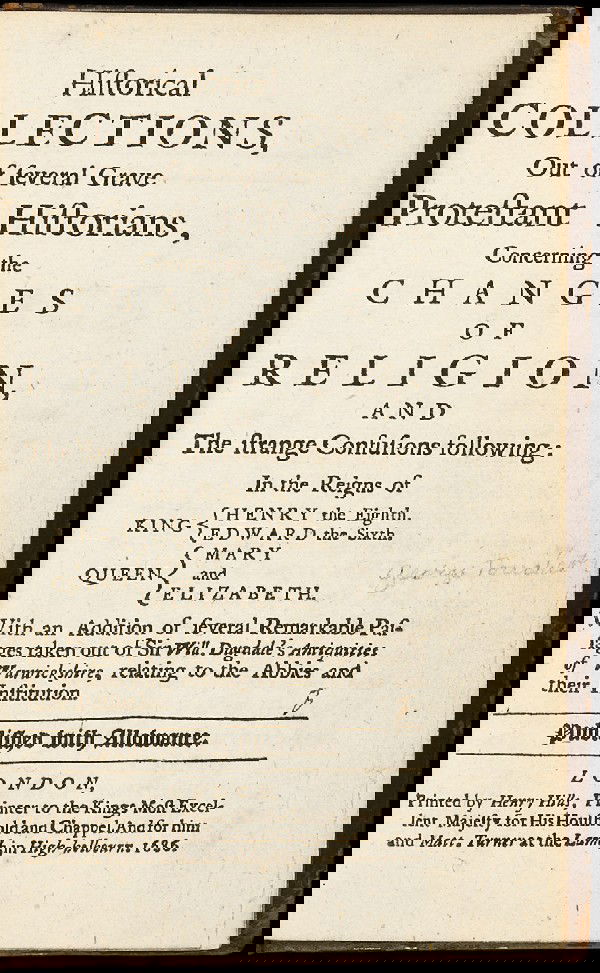 Hiſtorical
COLLECTIONS,
Out of ſeveral Grave
Proteſtant Hiſtorians,
Concerning the
CHANGES
OF
RELIGION,
AND
The ſtrange Confuſions following:
In the Reigns of
KING { HENRY the Eighth.
EDWARD the Sixth.
QUEEN { MARY
and
ELIZABETH.
With an Addition of ſeveral Remarkable Paſ-
ſages taken out of Sir Will. Dugdale's Antiquities
of Warwickshire, relating to the Abbies and
their Inſtitution.
Publiſhed with Allowance.
LONDON,
Printed by Henry Hills, Printer to the Kings Moſt Excel-
lent Majeſty, for His Houſhold and Chappel; And for him
and Matt. Turner at the Lamb in High-holbourn. 1686.